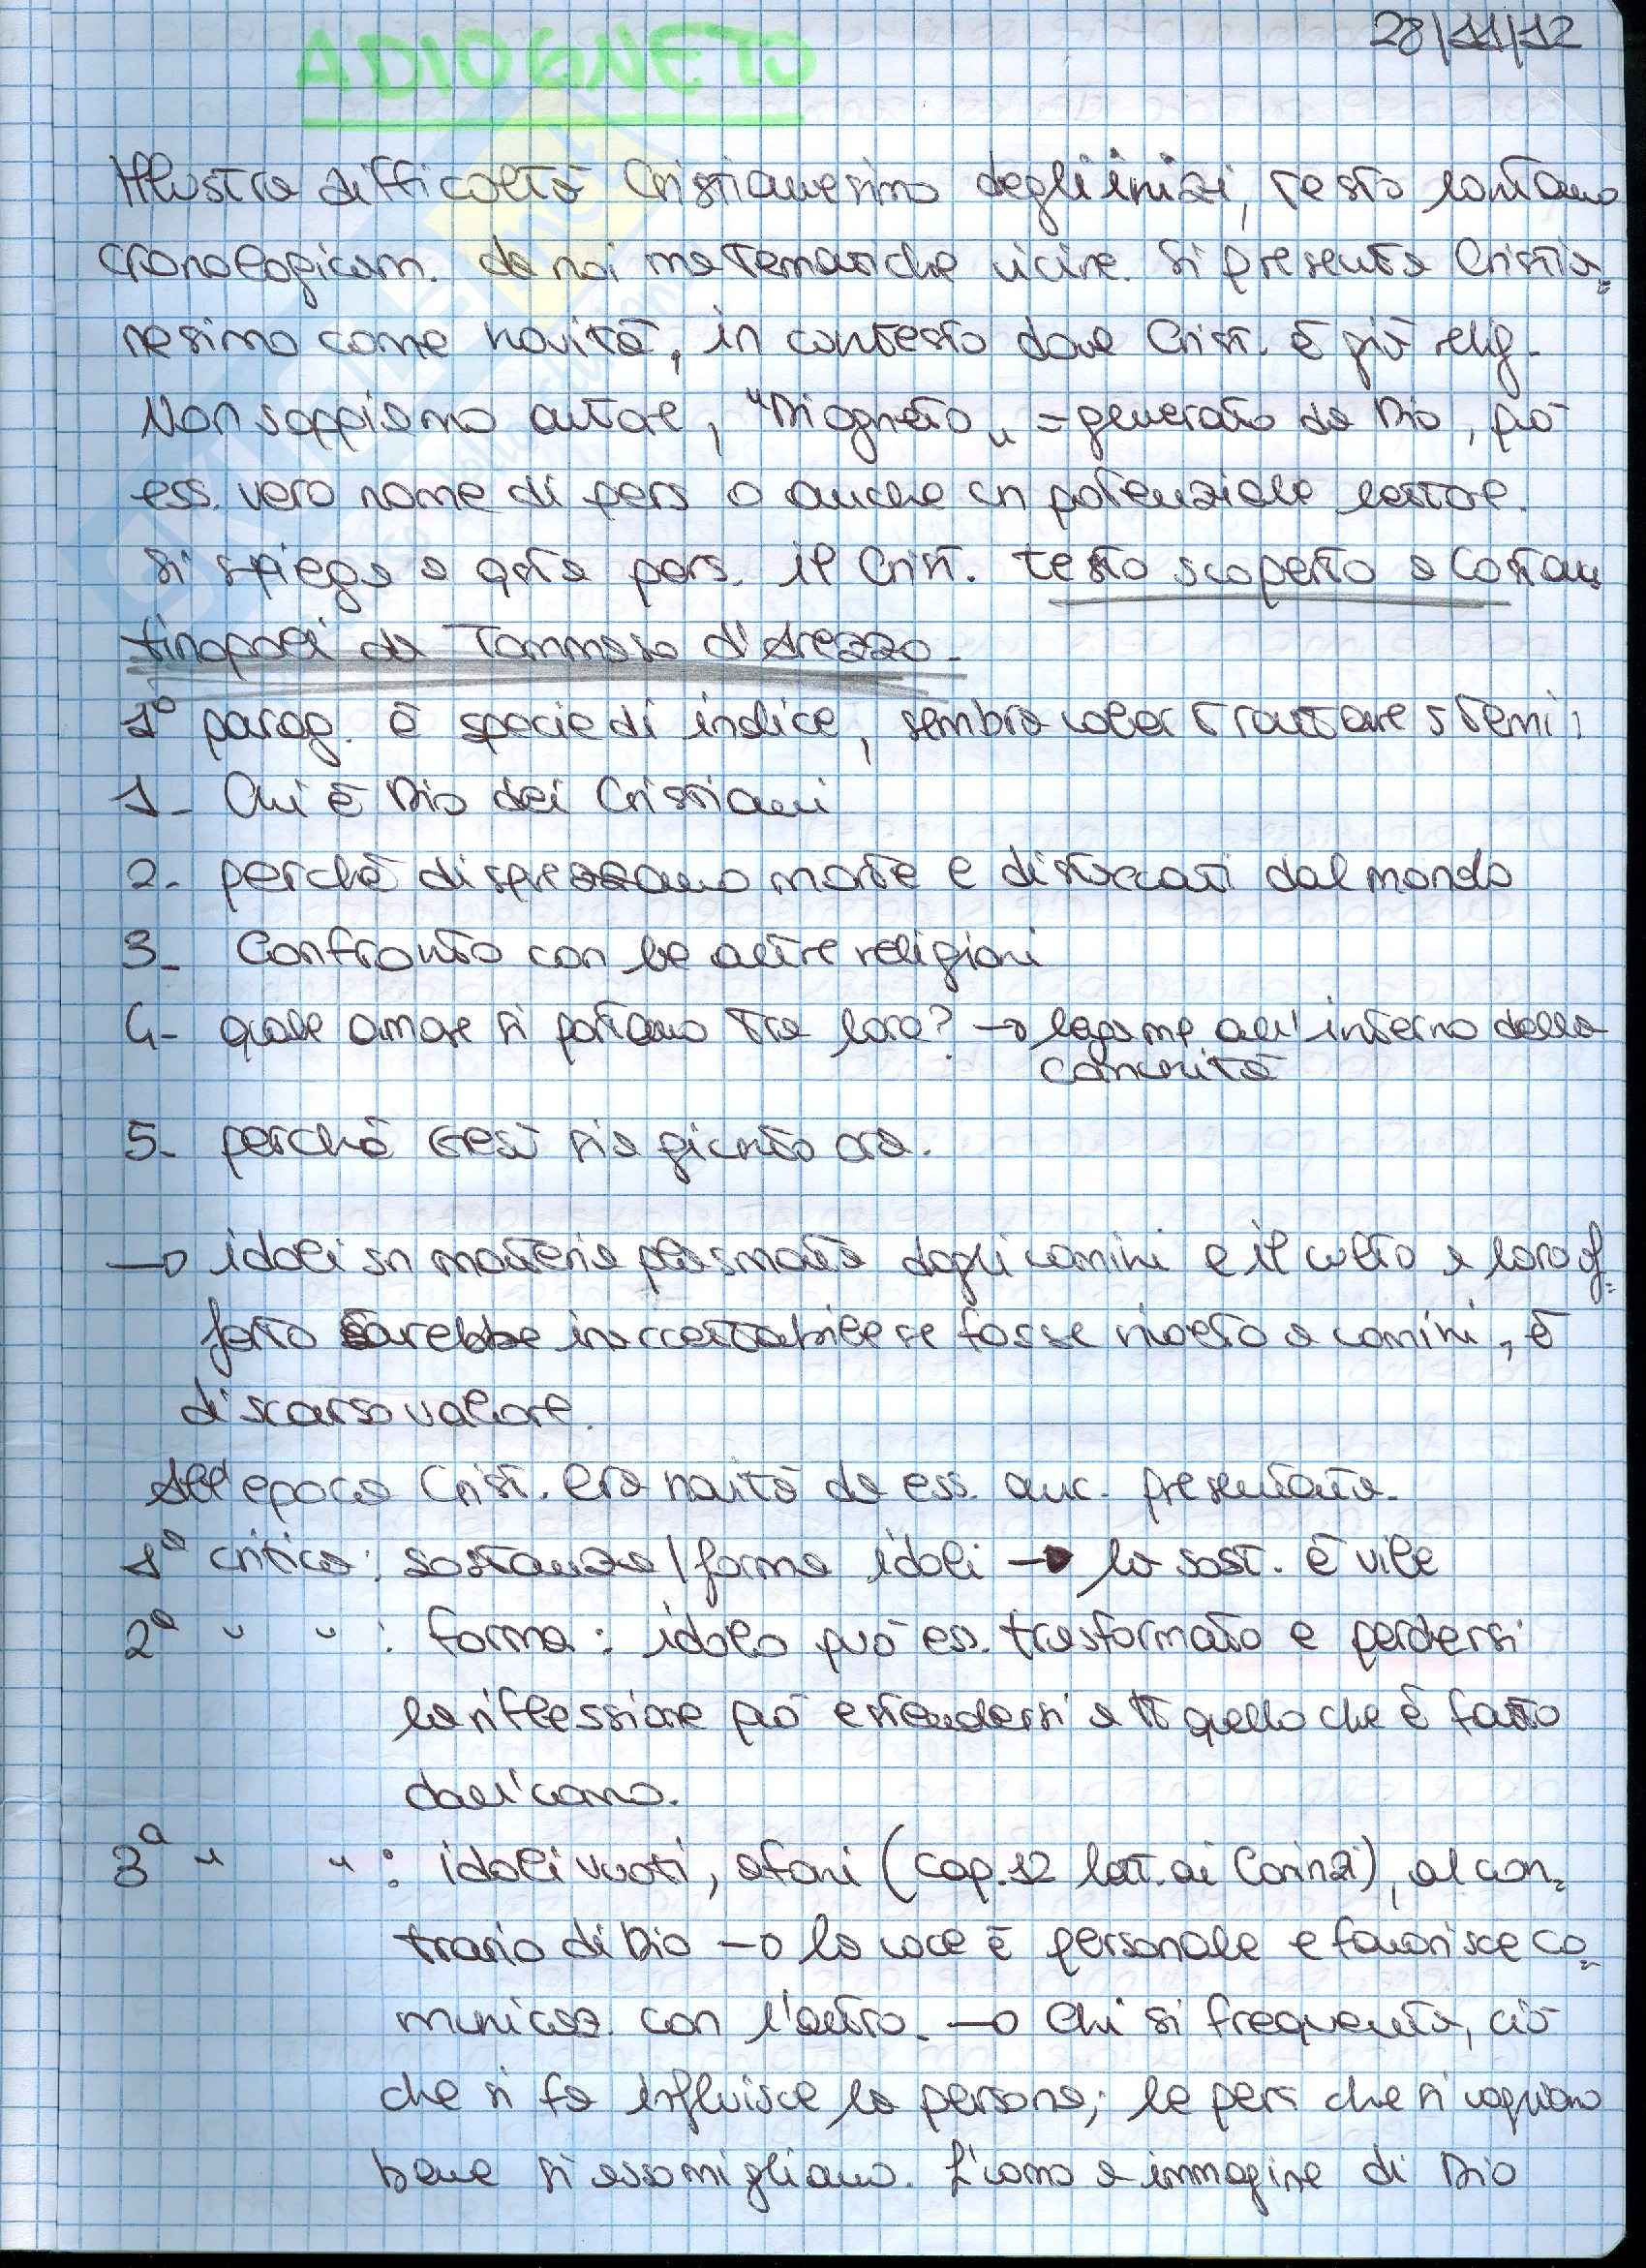 28/11/12
ADIOGNETO
Illustra difficoltà Cristianesimo degli inizi, testo lontano
cronologicam. da noi ma tematiche vicine. Si presenta Cristia=
nesimo come novità, in contesto dove Crist. è più relig.
Non sappiamo autore, "Diogneto" = generato da Dio, può
ess. vero nome di pers o anche un potenziale lettore.
Si spiega a qsta pers. il Crist. testo scoperto a Costan
tinopoli da Tommaso d'Arezzo.
1° parag. è specie di indice, sembra voler trattare 5 temi:
1- Chi è Dio dei Cristiani
2- perché disprezzano morte e distaccati dal mondo
3- Confronto con le altre religioni
4- quale amore si portano tra loro? → legame all'interno della
comunità
5- perché Gesù sia giunto ora.
→ idoli sn materia plasmata dagli uomini e il culto a loro of=
ferto sarebbe inaccettabile se fosse rivolto a uomini, è
di scarso valore.
All'epoca Crist. era novità da ess. anc. presentata.
1ª critica: sostanza/forma idoli → la sost. è vile
2ª " " : forma: idolo può ess. trasformato e perdersi
la riflessione può estendersi a tt quello che è fatto
dall'uomo.
3ª " " : idoli vuoti, afoni (cap.12 lett. ai Corinzi), al con=
trario di Dio → la voce è personale e favorisce co=
municaz. con l'altro. → Chi si frequenta, ciò
che si fa influisce la persona; le pers che si vogliono
bene si assomigliano. L'uomo a immagine di Dio